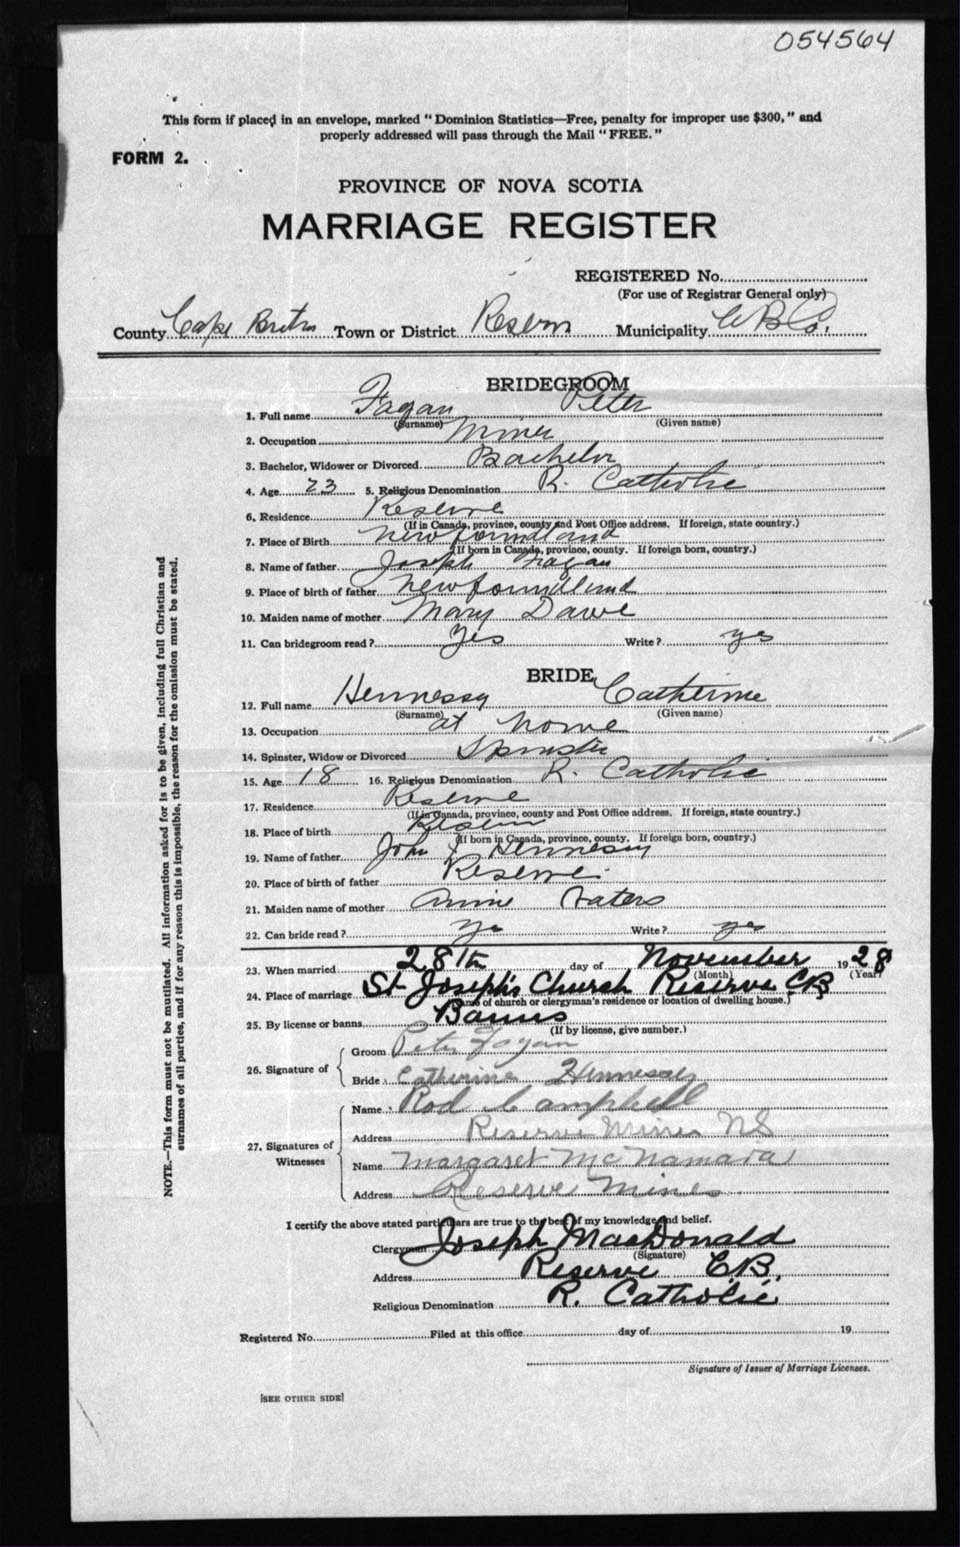 054564
This form if placed in an envelope, marked "Dominion Statistics—Free, penalty for improper use $300," and
properly addressed will pass through the Mail "FREE."
FORM 2.
PROVINCE OF NOVA SCOTIA
MARRIAGE REGISTER
REGISTERED No.
(For use of Registrar General only)
County Cape Breton Town or District Reserve Municipality C B Co.
BRIDEGROOM
1. Full name Fagan Peter
(Surname) (Given name)
2. Occupation Miner
3. Bachelor, Widower or Divorced Bachelor
4. Age 23 5. Religious Denomination R. Catholic
6. Residence Reserve
(If in Canada, province, county and Post Office address. If foreign, state country.)
7. Place of Birth Newfoundland
(If born in Canada, province, county. If foreign born, country.)
8. Name of father Joseph Fagan
9. Place of birth of father Newfoundland
10. Maiden name of mother Mary Dawe
11. Can bridegroom read? Yes Write? yes
BRIDE
12. Full name Hennessy Catherine
(Surname) (Given name)
13. Occupation at home
14. Spinster, Widow or Divorced Spinster
15. Age 18 16. Religious Denomination R. Catholic
17. Residence Reserve
(If in Canada, province, county and Post Office address. If foreign, state country.)
18. Place of birth Reserve
(If born in Canada, province, county. If foreign born, country.)
19. Name of father John Hennessy
20. Place of birth of father Reserve
21. Maiden name of mother Annie
22. Can bride read? Yes Write? yes
23. When married 28th day of November 1928
(Month) (Year)
24. Place of marriage St Joseph's Church Reserve CB
(Name of church or clergyman's residence or location of dwelling house.)
25. By license or banns Banns
(If by license, give number.)
26. Signature of
Groom Peter Fagan
Bride Catherine Hennessy
27. Signatures of Witnesses
Name Rod Campbell
Address Reserve Mines NS
Name Margaret McNamara
Address Reserve Mines
I certify the above stated particulars are true to the best of my knowledge and belief.
Clergyman Joseph MacDonald
(Signature)
Address Reserve C.B.
Religious Denomination R. Catholic
Registered No. Filed at this office day of 19
Signature of Issuer of Marriage Licenses.
[SEE OTHER SIDE]
NOTE.—This form must not be mutilated. All information asked for is to be given, including full Christian and
surnames of all parties, and if for any reason this is impossible, the reason for the omission must be stated.